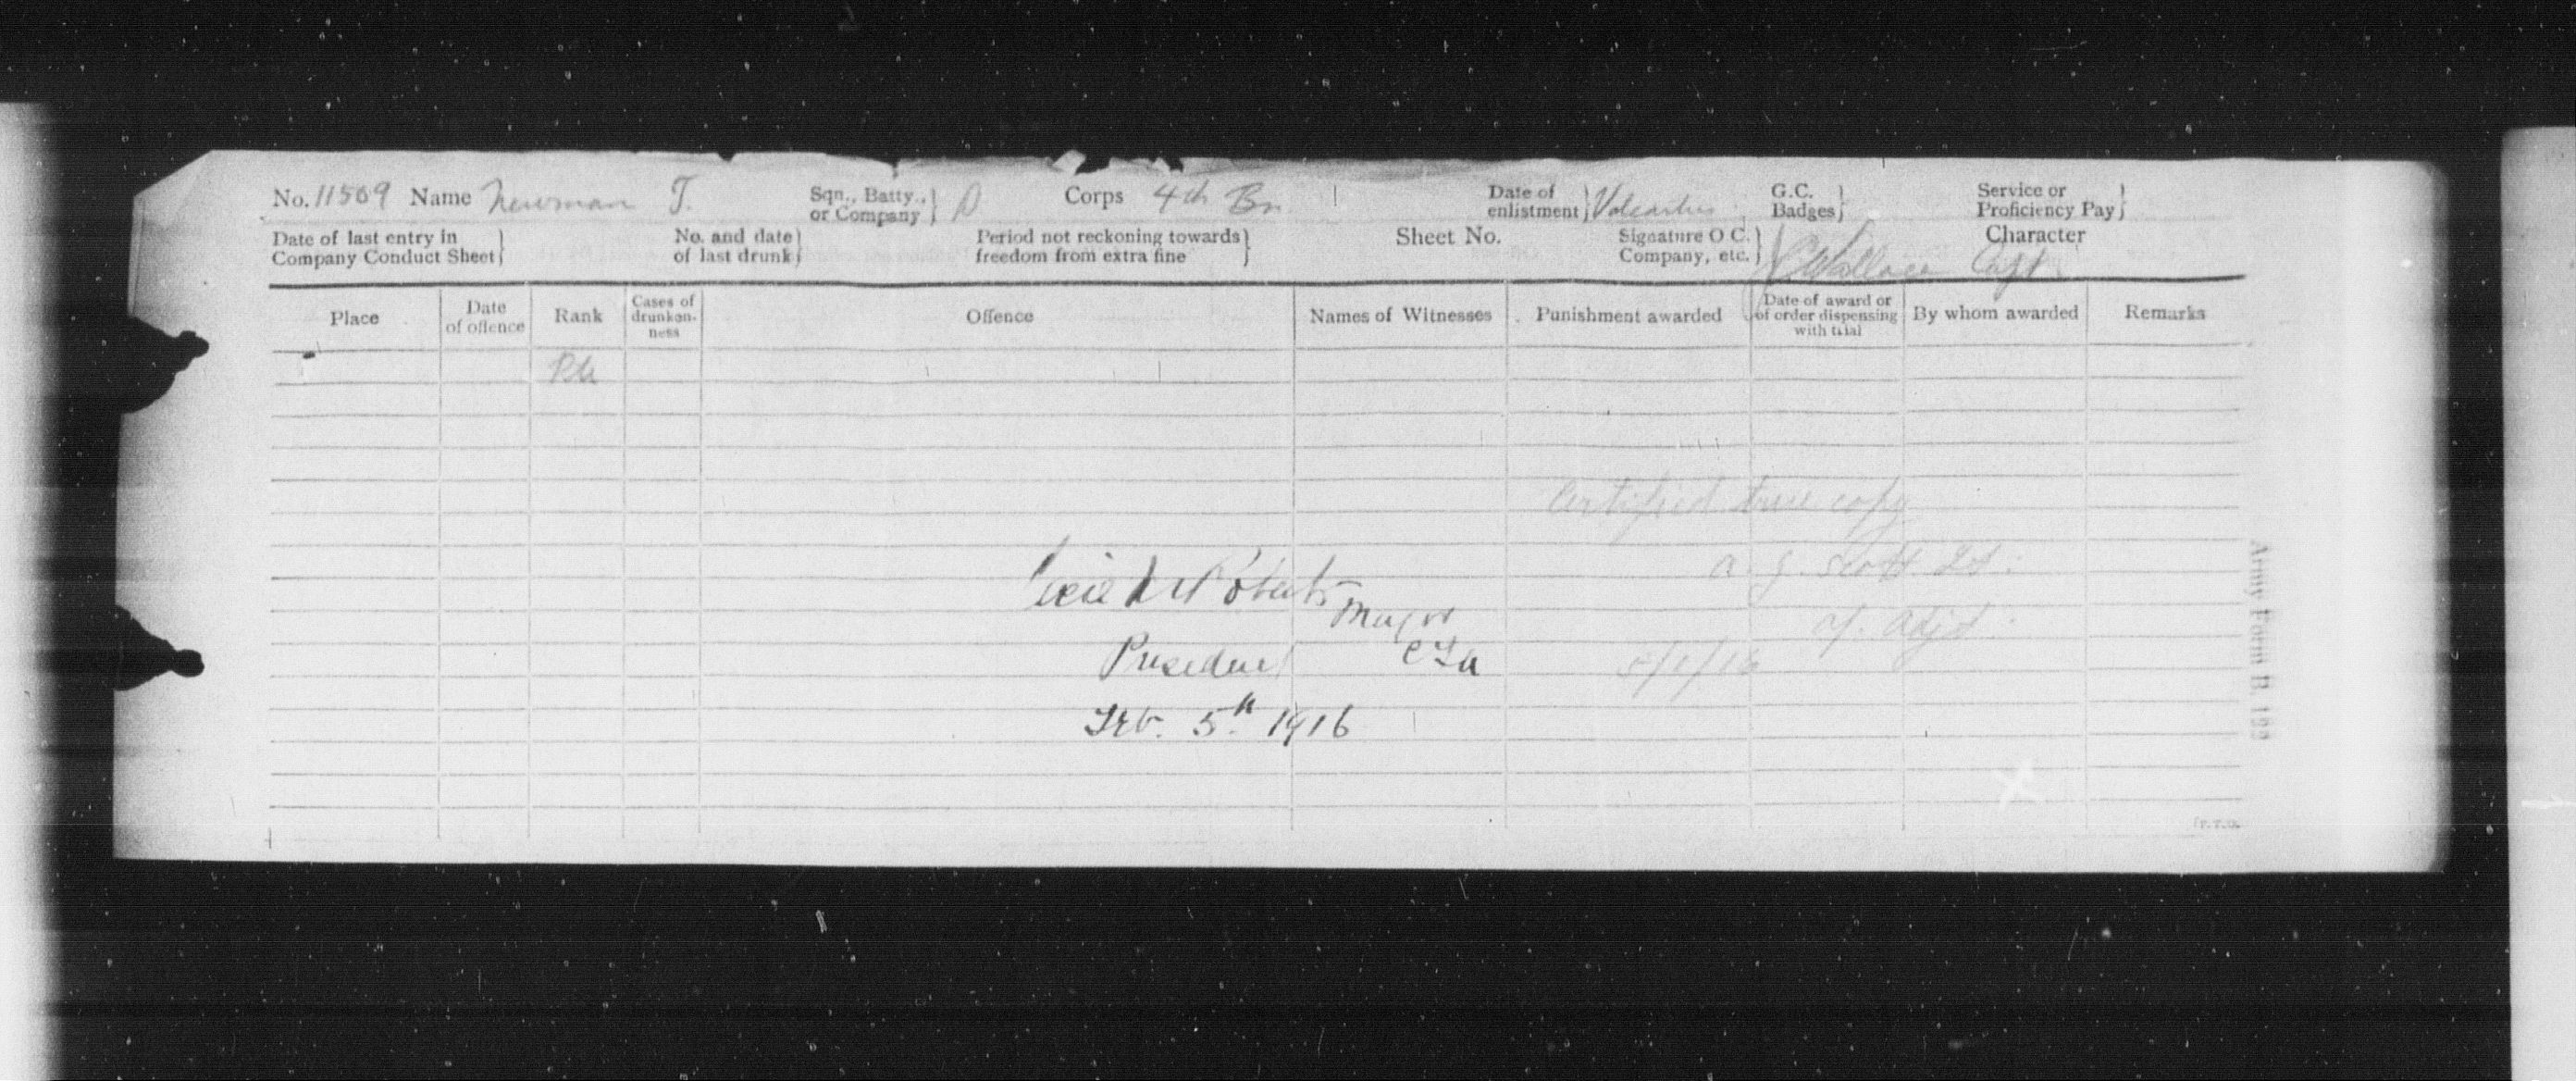 No. 11509 Name Newman T. Sqn., Batty., or Company } D Corps 4th Bn Date of enlistment } Valcartier G.C. Badges } Service or Proficiency Pay }
Date of last entry in Company Conduct Sheet } No. and date of last drunk } Period not reckoning towards freedom from extra fine } Sheet No. Signature O C. Company, etc. } Wallace Capt Character
Place Date of offence Rank Cases of drunken-ness Offence Names of Witnesses Punishment awarded Date of award or of order dispensing with trial By whom awarded Remarks
Pte
Certified true copy
a. J. Scott Lt.
Cecil Roberts
Major
a/. Adjt.
President
5/1/16
Feb. 5th 1916
Army Form B. 122
(P.T.O.